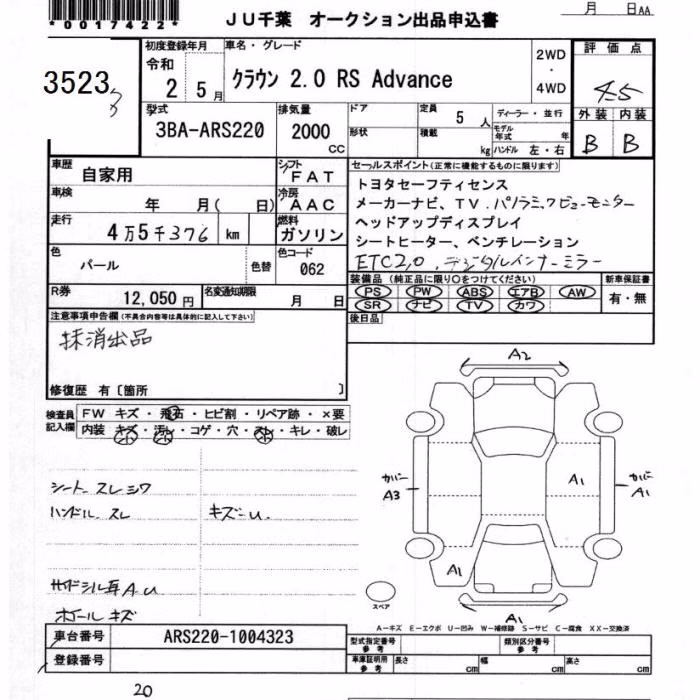 *0017422*
JU千葉 オークション出品申込書
月 日AA
3523
初度登録年月
令和
2 5月
車名・グレード
クラウン 2.0 RS Advance
2WD
・
4WD
評価点
4.5
外装 内装
B B
型式
3BA-ARS220
排気量
2000
CC
ドア
形状
定員
5人
積載
kg
ディーラー・並行
モデル年式 年
ハンドル 左・右
車歴
自家用
シフト
FAT
車検
年 月( 日)
冷房
AAC
走行
4万5千376 km
燃料
ガソリン
色
パール
色替
色コード
062
R券
12,050円
名変通知期限
月 日
セールスポイント(正常に機能するものに限ります)
トヨタセーフティセンス
メーカーナビ、TV、パノラミックビューモニター
ヘッドアップディスプレイ
シートヒーター、ベンチレーション
ETC2.0、デジタルインナーミラー
装備品 (純正品に限り○をつけてください)
PS PW ABS エアB AW
SR ナビ TV カワ
新車保証書
有・無
後日品
注意事項申告欄(不具合内容等は具体的に記入して下さい)
抹消出品
修復歴 有〔箇所 〕
検査員記入欄
FW キズ・飛石・ヒビ割・リペア跡・×要
内装 キズ・汚レ・コゲ・穴・スレ・キレ・破レ
小 小 小
シート スレシワ
ハンドル スレ
キズ-U
サイドシル耳A.U
ホイール キズ
A2
カバー
A3
A1
カバー
A1
A1
A1
スペア
A-キズ E-エクボ U-凹み W-補修跡 S-サビ C-腐食 XX-交換済
車台番号
ARS220-1004323
登録番号
型式指定番号
参考
類別区分番号
参考
車庫証明用
参考
長さ cm
幅 cm
高さ cm
20